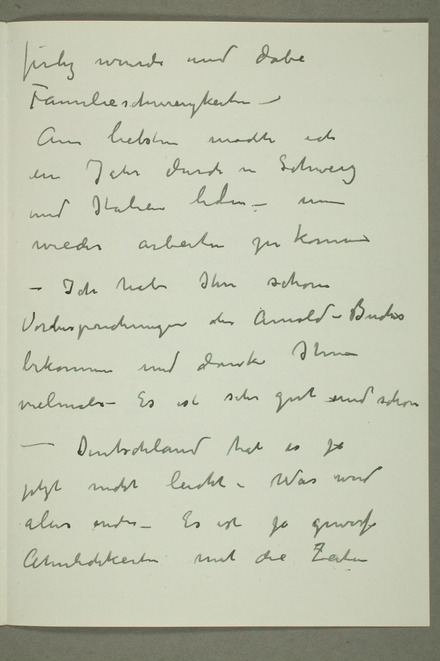 fertig wurde und dabei
Familienschwierigkeiten –
Am liebsten möchte ich
ein Jahr durch die Schweiz
und Italien leben – um
wieder arbeiten zu können
– Ich habe Ihre schöne
Vorbesprechungen des Arnold-Buches
bekommen und danke Ihnen
vielmals – Es ist sehr gut und schön
— Deutschland hat es ja
jetzt nicht leicht – Was wird
alles enden – Es ist ja gewisse
Ähnlichkeiten mit die Zeiten